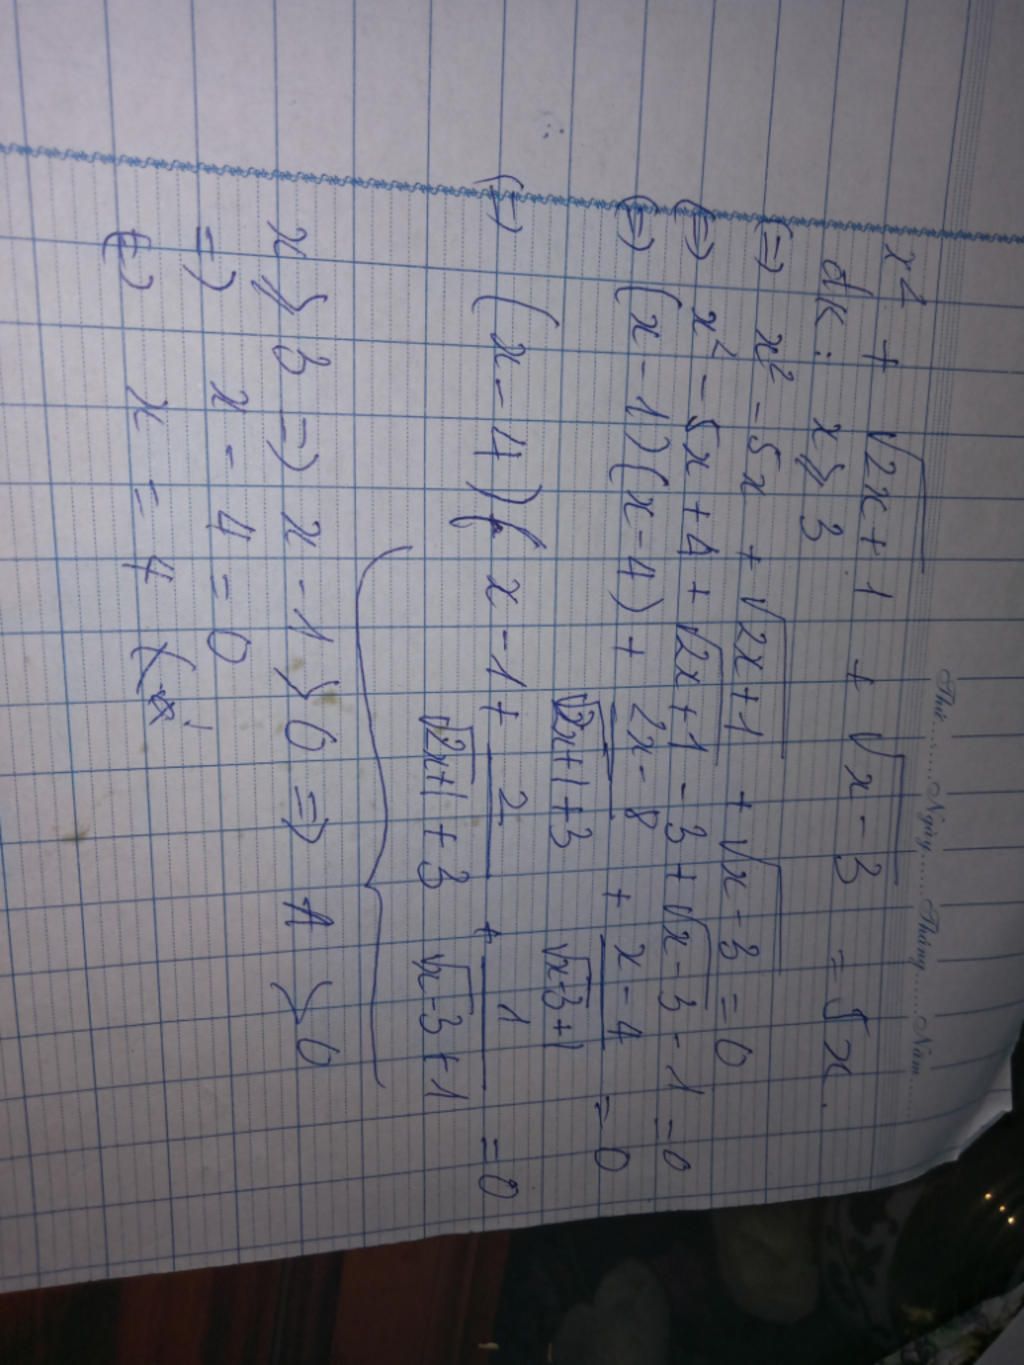 Thứ.........Ngày.......Tháng.......Năm.......
x² + √(2x+1) + √(x-3) = 5x.
đk: x ≥ 3
(=) x² - 5x + √(2x+1) + √(x-3) = 0
(=) x² - 5x + 4 + √(2x+1) - 3 + √(x-3) - 1 = 0
(=) (x-1)(x-4) + (2x-8)/(√(2x+1)+3) + (x-4)/(√(x-3)+1) = 0
(=) (x-4)(x-1 + 2/(√(2x+1)+3) + 1/(√(x-3)+1) = 0
x ≥ 3 =) x-1 ≥ 0 => A > 0
=) x-4 = 0
(=) x = 4